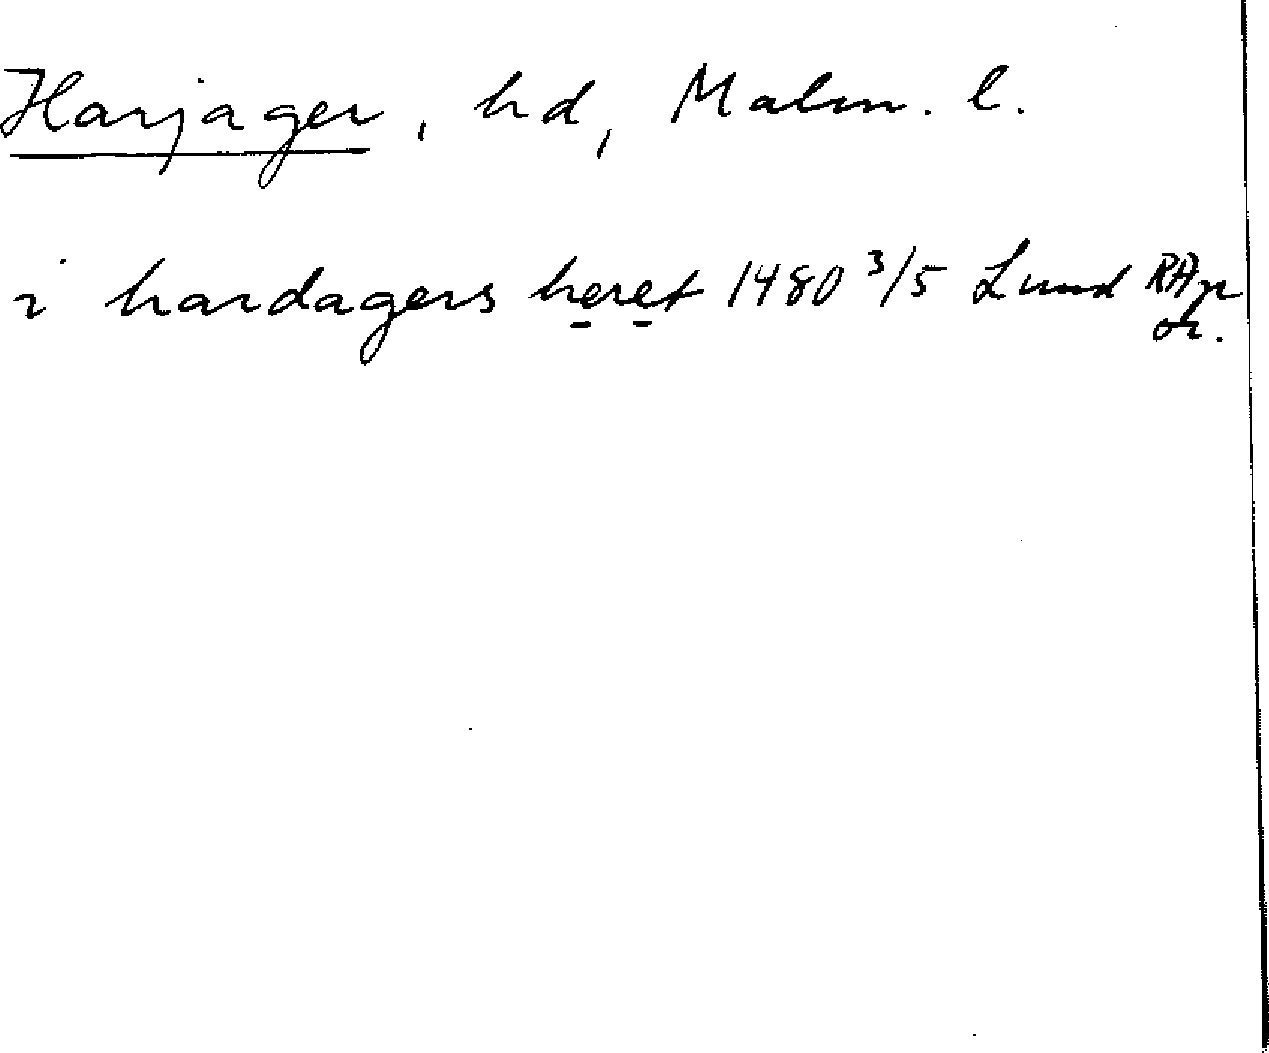 Harjager, hd, Malm. l.
i hardagers heret 1480 3/5 Lund RAp
or.